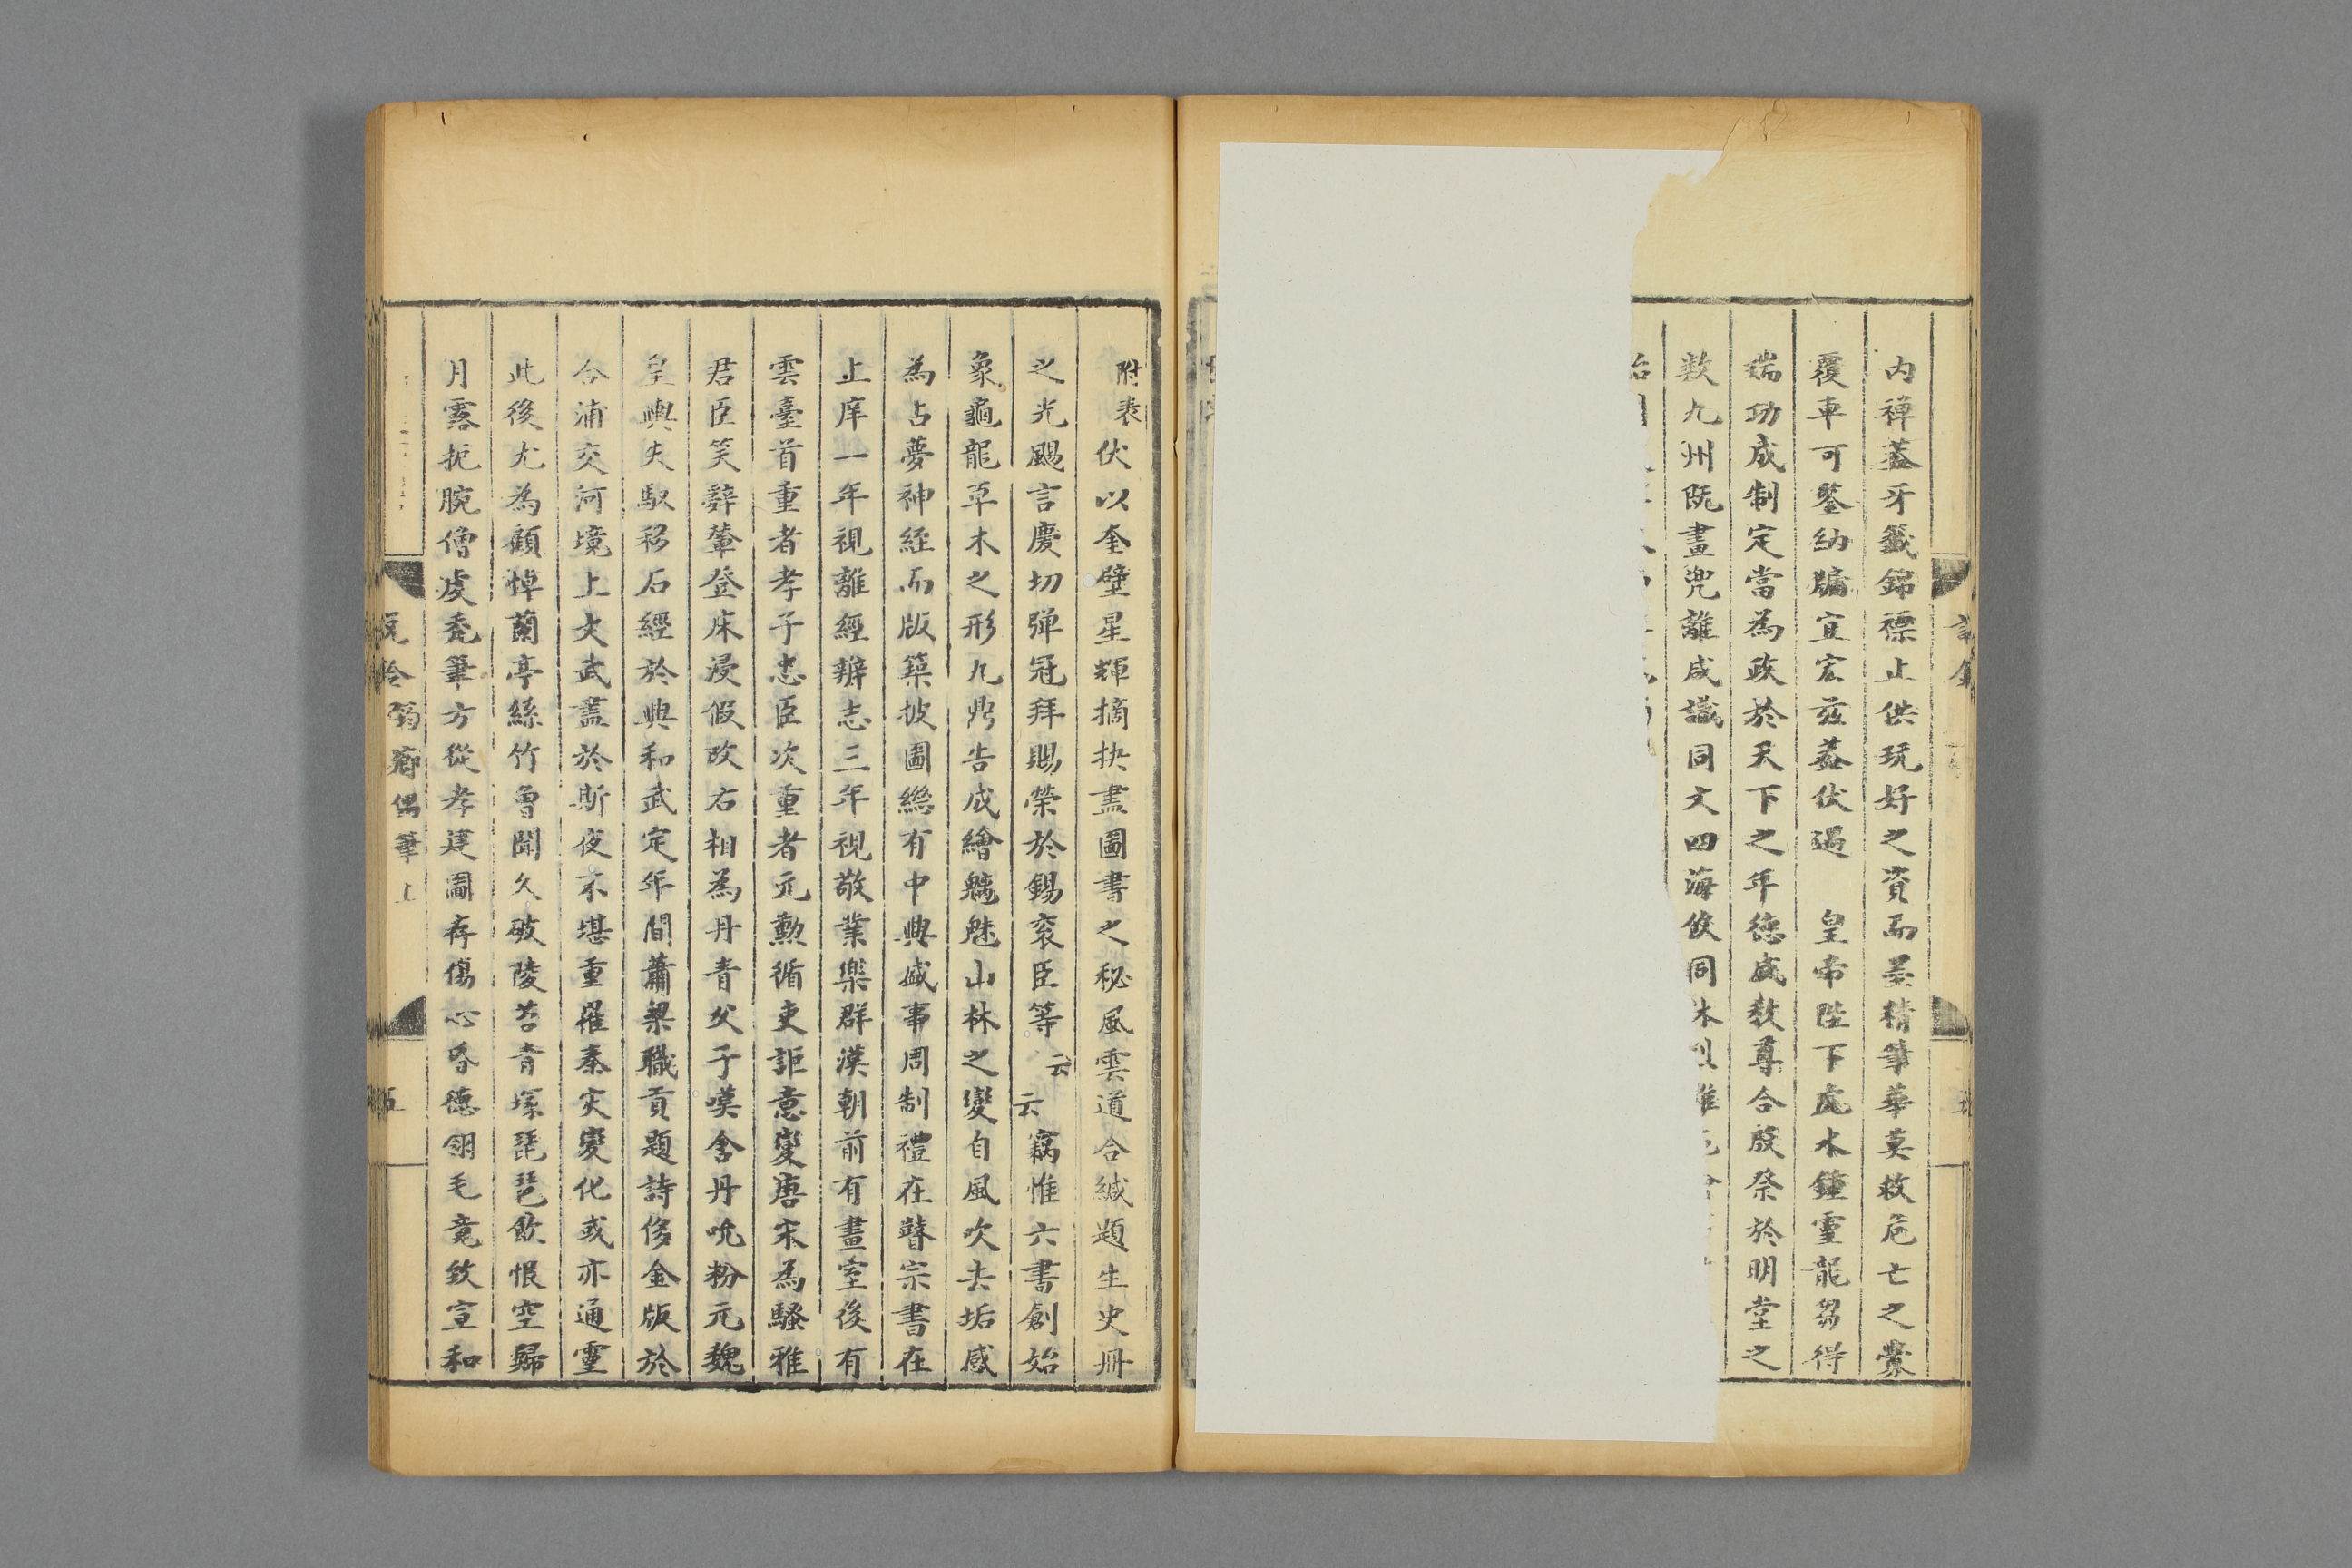 內禪蓋牙籤錦褾止供玩好之資而墨精筆華莫救危亡之釁
覆車可鑒納牖宜宏茲蓋伏遇　皇帝陛下虡木鍾靈龍芻得
瑞功成制定當為政於天下之年德盛教尊合殷祭於明堂之
數九州既畫兜離咸識同文四海攸同
附表伏以奎壁星輝摘抉盡圖書之秘風雲道合緘題生史冊
之光颺言慶切彈冠拜賜榮於錫衮臣等云云竊惟六書創始
象龜龍草木之形九鼎告成繪魑魅山林之變自風吹去垢感
為占夢神經而版築披圖緫有中興盛事周制禮在瞽宗書在
上庠一年視離經辨志三年視敬業樂群漢朝前有畫室後有
雲臺首重者孝子忠臣次重者元勳循吏詎意變唐宋為騷雅
君臣笑辭輦登床浸假改右相為丹青父子嘆含丹吮粉元魏
皇輿失馭移石經於興和武定年間蕭梁職貢題詩侈金版於
合浦交河境上文武盡於斯夜不堪重罹秦灾變化或亦通靈
此後尤為顧悼蘭亭絲竹魯聞久破陵苔青塚琵琶飲恨空歸
月露扼腕僧虔禿筆方從孝建圖存傷心昏德翎毛竟致宣和
弱薌偶筆上
五